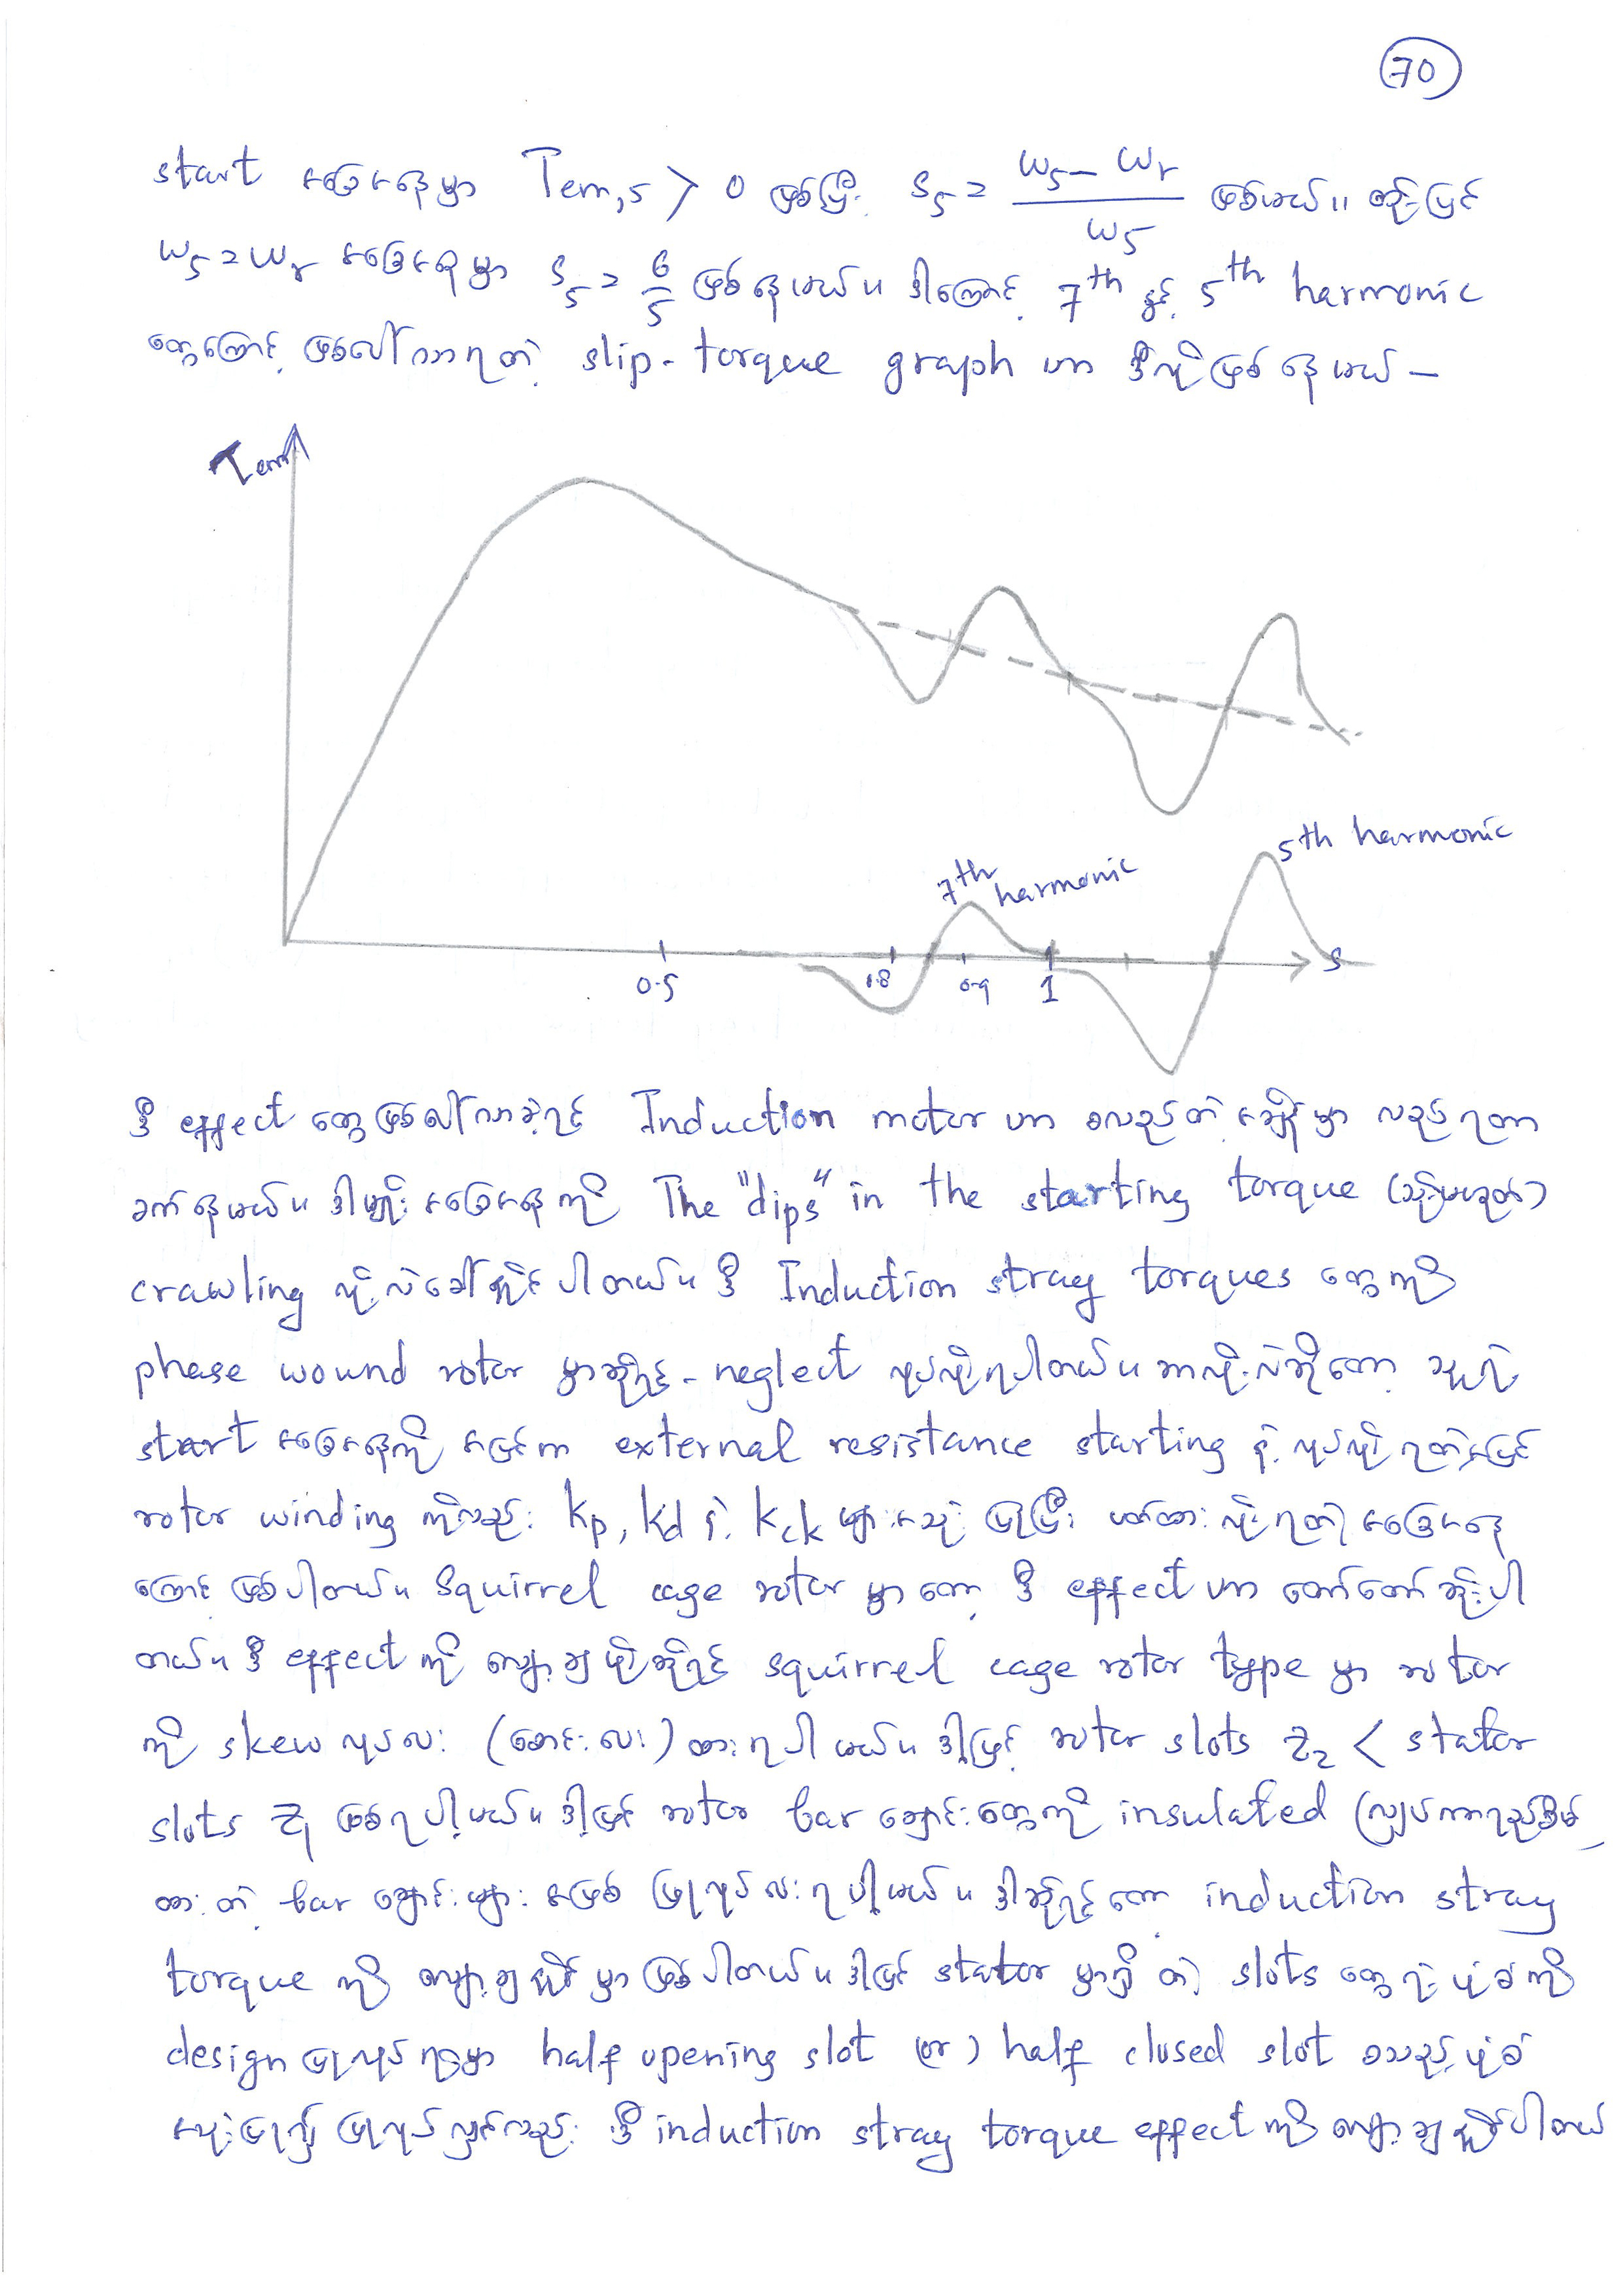 70
start အခြေအနေမှာ Tem,5 > 0 ဖြစ်ပြီး S5 = (ω5 - ωr) / ω5 ဖြစ်မယ်။ ထို့ပြင်
ω5 = ωr အခြေအနေမှာ S5 = 6/5 ဖြစ်နေမယ်။ ဒါကြောင့် 7th နှင့် 5th harmonic
တွေကြောင့် ဖြစ်ပေါ်လာရတဲ့ slip-torque graph ဟာ ဒီလိုဖြစ်နေမယ် –
Tem
5th harmonic
7th harmonic
0.5 0.8 0.9 1 s
ဒီ effect တွေဖြစ်ပေါ်လာခဲ့ရင် Induction motor ဟာ စလည်တဲ့အချိန်မှာ လည်ရတာ
ခက်နေမယ်။ ဒါမျိုးအခြေအနေကို The "dips" in the starting torque (သို့မဟုတ်)
crawling လို့လဲခေါ်နိုင်ပါတယ်။ ဒီ Induction stray torques တွေကို
phase wound rotor မှာဆိုရင် - neglect လုပ်လို့ရပါတယ်။ ဘာလို့လဲဆိုတော့ သူ့ရဲ့
start အခြေအနေကို အပြင်က external resistance starting နဲ့ လုပ်လို့ရတဲ့အပြင်
rotor winding ကိုလည်း kp, kd နဲ့ kck များအသုံးပြုပြီး ပတ်ထားလို့ရတဲ့အခြေအနေ
ကြောင့် ဖြစ်ပါတယ်။ Squirrel cage rotor မှာတော့ ဒီ effect ဟာ တော်တော်ဆိုးပါ
တယ်။ ဒီ effect ကို လျှော့ချဖို့ဆိုရင် squirrel cage rotor type မှာ rotor
ကို skew လုပ်ပေး (စောင်းပေး) ထားရပါမယ်။ ဒါ့ပြင် rotor slots Z2 < stator
slots Z1 ဖြစ်ရပါ့မယ်။ ဒါ့ပြင် rotor bar ချောင်းတွေကို insulated
ထားတဲ့ bar ချောင်းများအဖြစ် ပြုလုပ်ပေးရပါ့မယ်။ ဒါဆိုရင်တော့ induction stray
torque ကို လျှော့ချနိုင်မှာဖြစ်ပါတယ်။ ဒါ့ပြင် stator မှာရှိတဲ့ slots တွေရဲ့ ပုံစံကို
design ပြုလုပ်ရာမှာ half opening slot (or) half closed slot စသည့်ပုံစံ
ပြုလုပ်လျှင်လည်း ဒီ induction stray torque effect ကို လျှော့ချနိုင်ပါတယ်